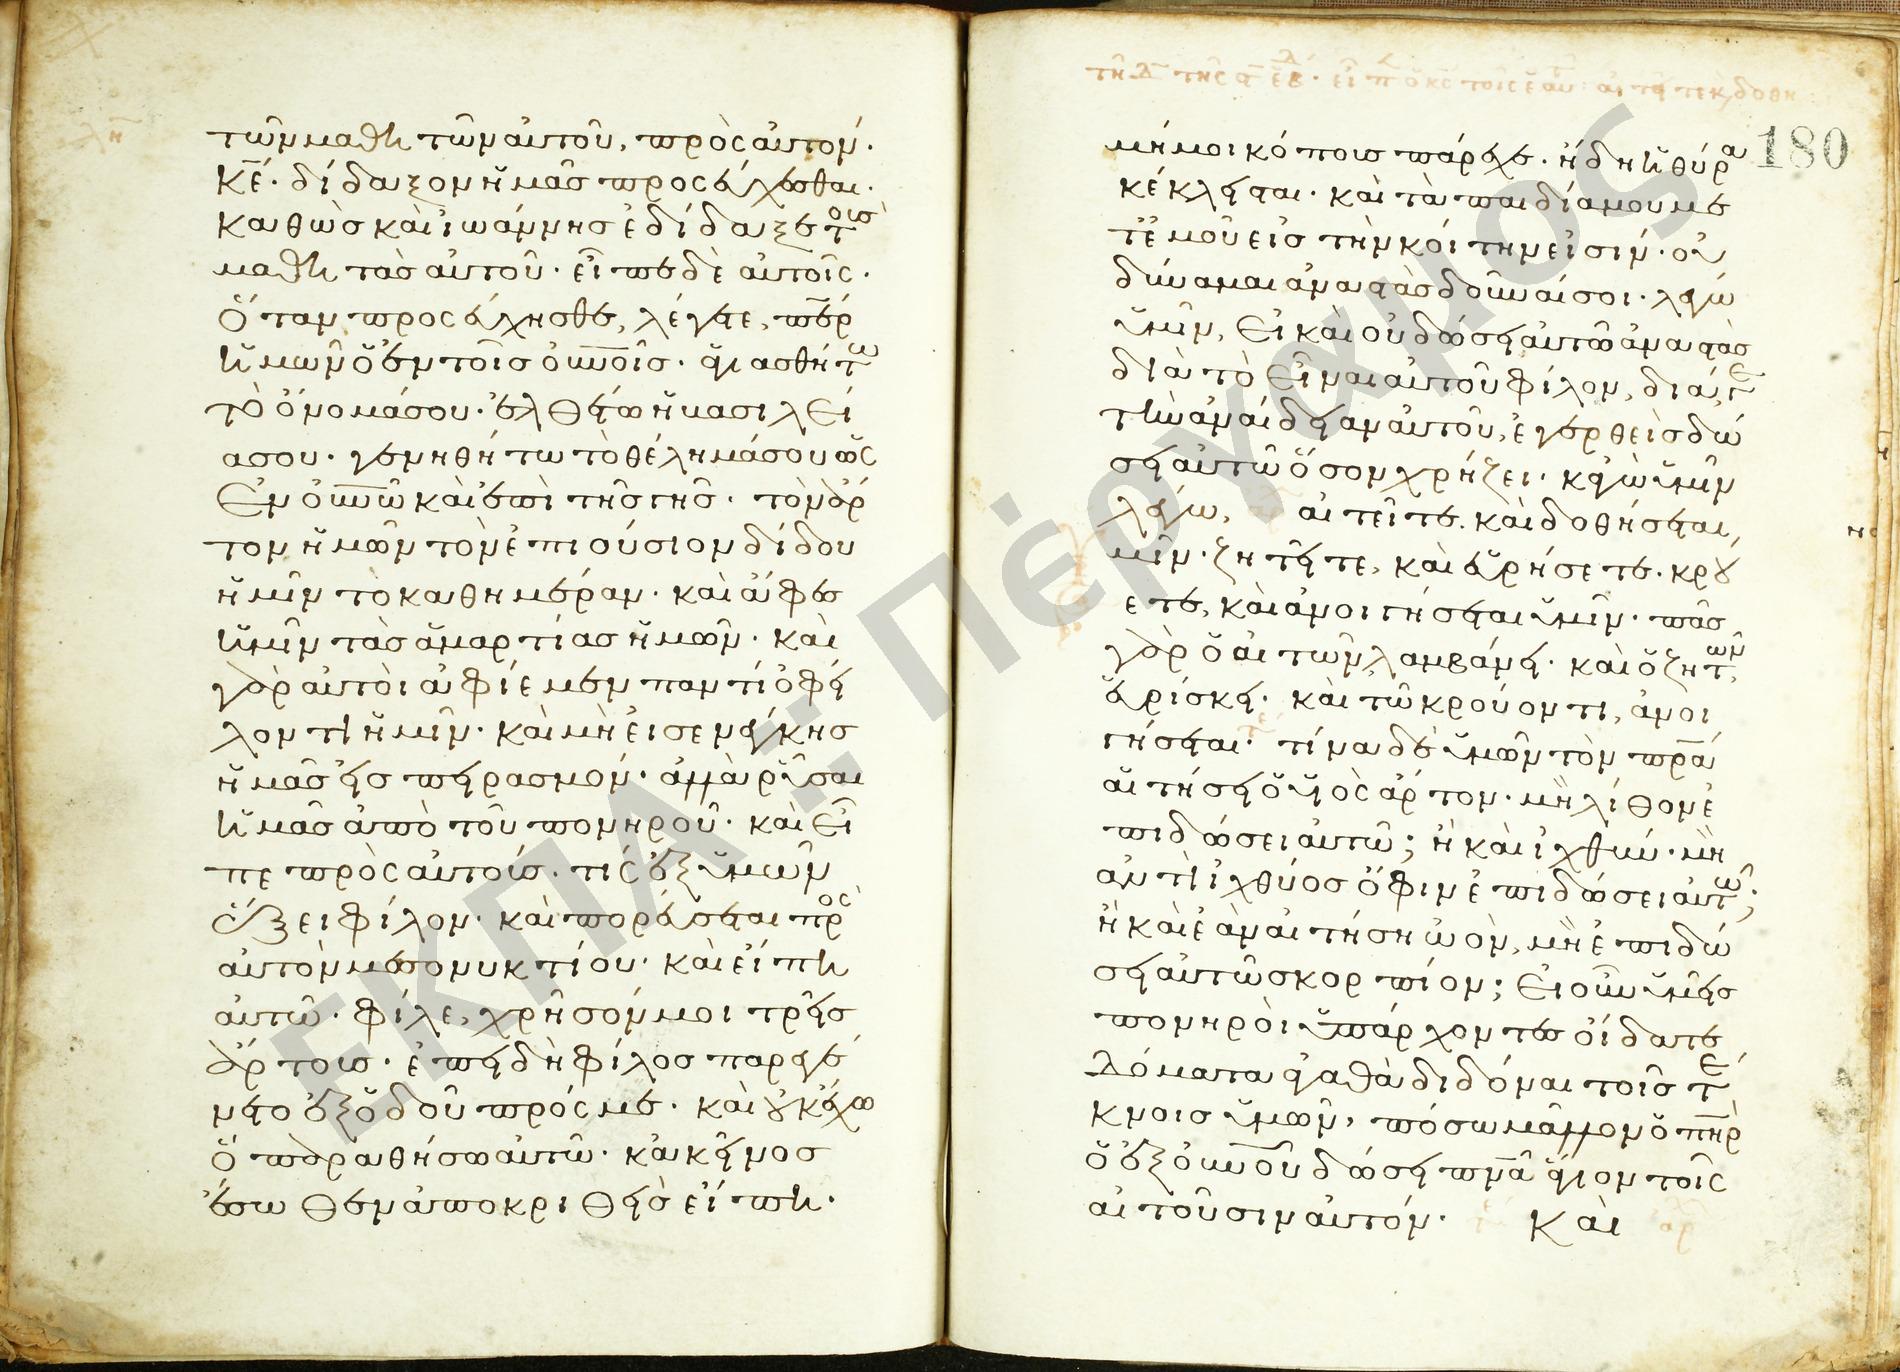 λη
τῶν μαθητῶν αὐτοῦ, πρὸς αὐτόν·
Κε̄· δίδαξον ἡμᾶς προσεύχεσθαι·
καθὼς καὶ ἰωάννης ἐδίδαξε τοὺς
μαθητὰς αὐτοῦ· εἶπε δὲ αὐτοῖς·
ὅταν προσεύχησθε, λέγετε, πε̄ρ
ἡμῶν ὁ ἐν τοῖς οὐνοῖς· ἁγιασθήτω
τὸ ὄνομά σου· ἐλθέτω ἡ βασιλεί
α σου· γενηθήτω τὸ θέλημά σου ὡς
ἐν οὐνῶ καὶ ἐπὶ τῆς γῆς· τὸν ἄρ
τον ἡμῶν τὸν ἐπιούσιον δίδου
ἡμῖν τὸ καθημέραν· καὶ ἄφες
ἡμῖν τὰς ἁμαρτίας ἡμῶν· καὶ
γὰρ αὐτοὶ ἀφίεμεν παντὶ ὀφεί
λοντι ἡμῖν· καὶ μὴ εἰσενέγκης
ἡμᾶς εἰς πειρασμόν· ἀλλὰ ῥῦσαι
ἡμᾶς ἀπὸ τοῦ πονηροῦ· καὶ εἶ
πε πρὸς αὐτούς· τίς ἐξ ὑμῶν
ἕξει φίλον· καὶ πορεύσεται πρὸς
αὐτὸν μεσονυκτίου· καὶ εἴπη
αὐτῶ· φίλε, χρῆσόν μοι τρεῖς
ἄρτους· ἐπειδὴ φίλος παρεγέ
νετο ἐξ ὁδοῦ πρός με· καὶ οὐκ ἔχω
ὃ παραθήσω αὐτῶ· κἀκεῖνος
ἔσωθεν ἀποκριθεὶς εἴπη·
180
μή μοι κόπους πάρεχε· ἤδη ἡ θύρα
κέκλεισται· καὶ τὰ παιδία μου με
τ' ἐμοῦ εἰς τὴν κοίτην εἰσίν· οὐ
δύναμαι ἀναστὰς δοῦναί σοι· λέγω
ὑμῖν, εἰ καὶ οὐ δώσει αὐτῶ ἀναστὰς
διὰ τὸ εἶναι αὐτοῦ φίλον, διά γε
τὴν ἀναίδειαν αὐτοῦ, ἐγερθεὶς δώ
σει αὐτῶ ὅσον χρήζει· κἀγὼ ὑμῖν
λέγω, αἰτεῖτε. καὶ δοθήσεται ὑ
μῖν· ζητεῖτε, καὶ εὑρήσετε. κρού
ετε, καὶ ἀνοιγήσεται ὑμῖν· πᾶς
γὰρ ὁ αἰτῶν, λαμβάνει· καὶ ὁ ζητῶν,
εὑρίσκει· καὶ τῶ κρούοντι, ἀνοι
γήσεται· τίνα δὲ ὑμῶν τὸν πρ̄α
αἰτήσει ὁ υἱὸς ἄρτον· μὴ λίθον ἐ
πιδώσει αὐτῶ; ἢ καὶ ἰχθύν· μὴ
ἀντὶ ἰχθύος ὄφιν ἐπιδώσει αὐτῶ;
ἢ καὶ ἐὰν αἰτήση ὠὸν, μὴ ἐπιδώ
σει αὐτῶ σκορπίον; εἰ οὖν ὑμεῖς
πονηροὶ ὑπάρχοντες οἴδατε
δόματα ἀγαθὰ διδόναι τοῖς τέ
κνοις ὑμῶν, πόσω μᾶλλον ὁ πη̄ρ
ὁ ἐξ οὐνοῦ δώσει πν̄α ἅγιον τοῖς
αἰτοῦσιν αὐτόν· Καὶ
ΕΚΠΑ :: Πέργαμος